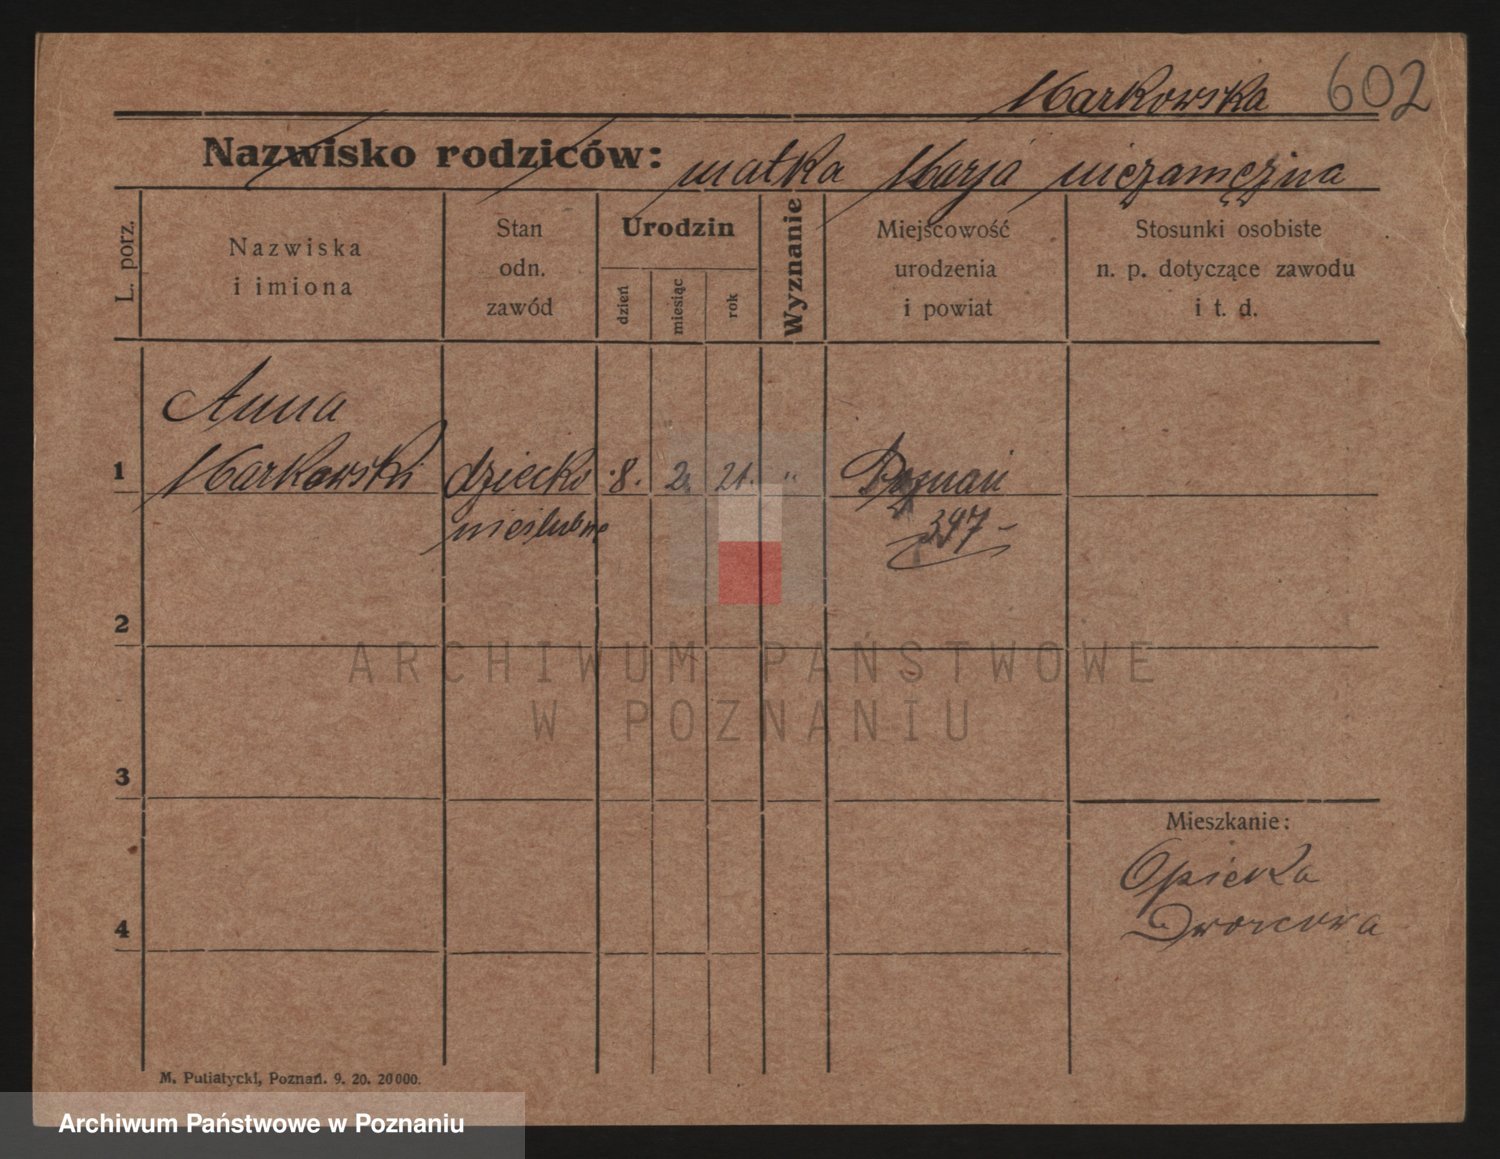 Markowska 602
Nazwisko rodziców: matka Marja niezamężna
L. porz.
Nazwiska
i imiona
Stan
odn.
zawód
Urodzin
dzień
miesiąc
rok
Wyznanie
Miejscowość
urodzenia
i powiat
Stosunki osobiste
n. p. dotyczące zawodu
i t. d.
Anna
1 Markowski dziecko 8. 2. 21. " Poznań
nieślubne 397 -
2
ARCHIWUM PAŃSTWOWE
W POZNANIU
3
Mieszkanie:
Opieka
4 Dworcowa
M. Putiatycki, Poznań. 9. 20. 20000.
Archiwum Państwowe w Poznaniu